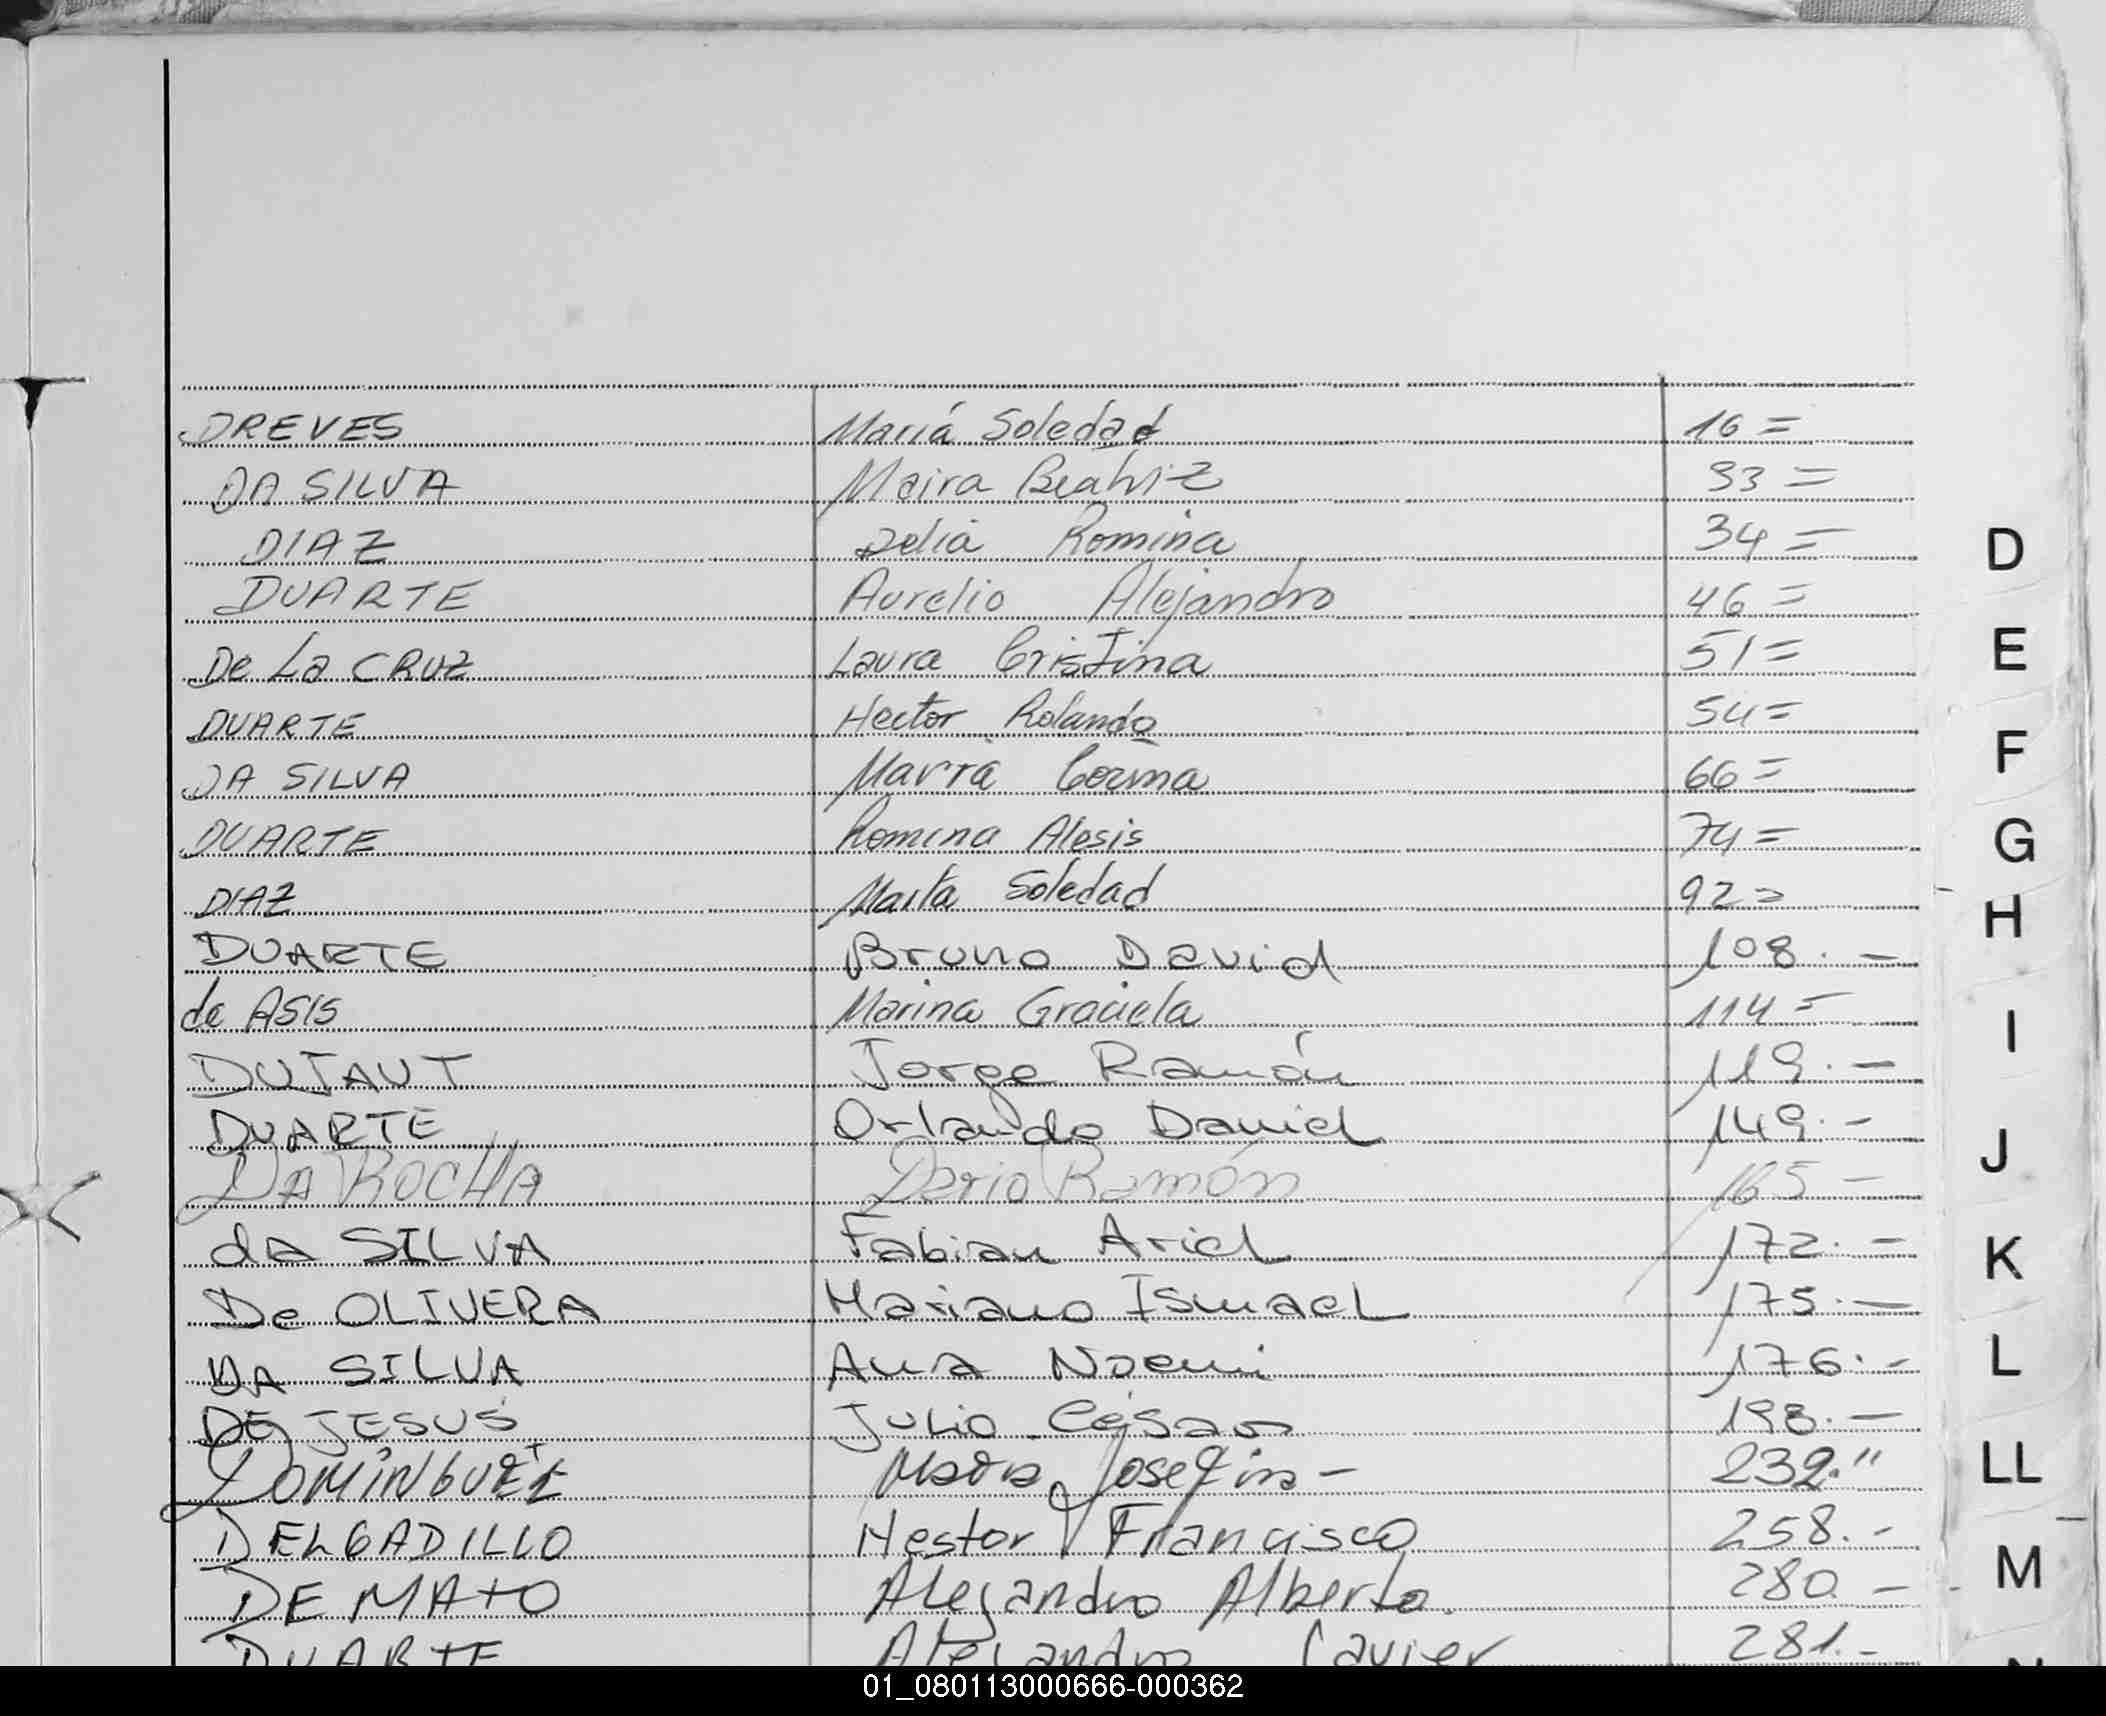 DREVES Mariá Soledad 16 =
DA SILVA Maira Beatriz 33 =
DIAZ Delia Romina 34 =
DUARTE Aurelio Alejandro 46 =
De La CRUZ Laura Cristina 51 =
DUARTE Hector Rolando 54 =
DA SILVA María 66 =
DUARTE Romina Alesis 74 =
DIAZ Marta Soledad 92 =
DUARTE Bruno David 108. -
de ASIS Marina Graciela 114 =
DUTAUT Jorge Ramón 119. -
DUARTE Orlando Daniel 149. -
DA ROCHA Dario Ramón 165 -
da SILVA Fabian Ariel 172. -
De OLIVERA Mariano Ismael 175. -
DA SILVA Ana Noemi 176. -
DE JESUS Julio César 198. -
DOMINGUEZ María Josefina - 232."
DELGADILLO Hestor Francisco 258. -
DE MATO Alejandro Alberto. 280 -
DUARTE Alejandro Javier 281. -
D
E
F
G
H
I
J
K
L
LL
M
N
01_080113000666-000362